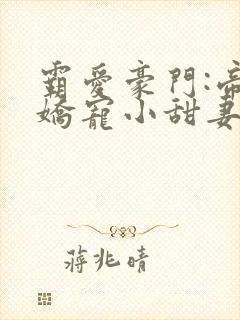 霸爱豪門:帝
嬌寵小甜妻
蔣兆晴